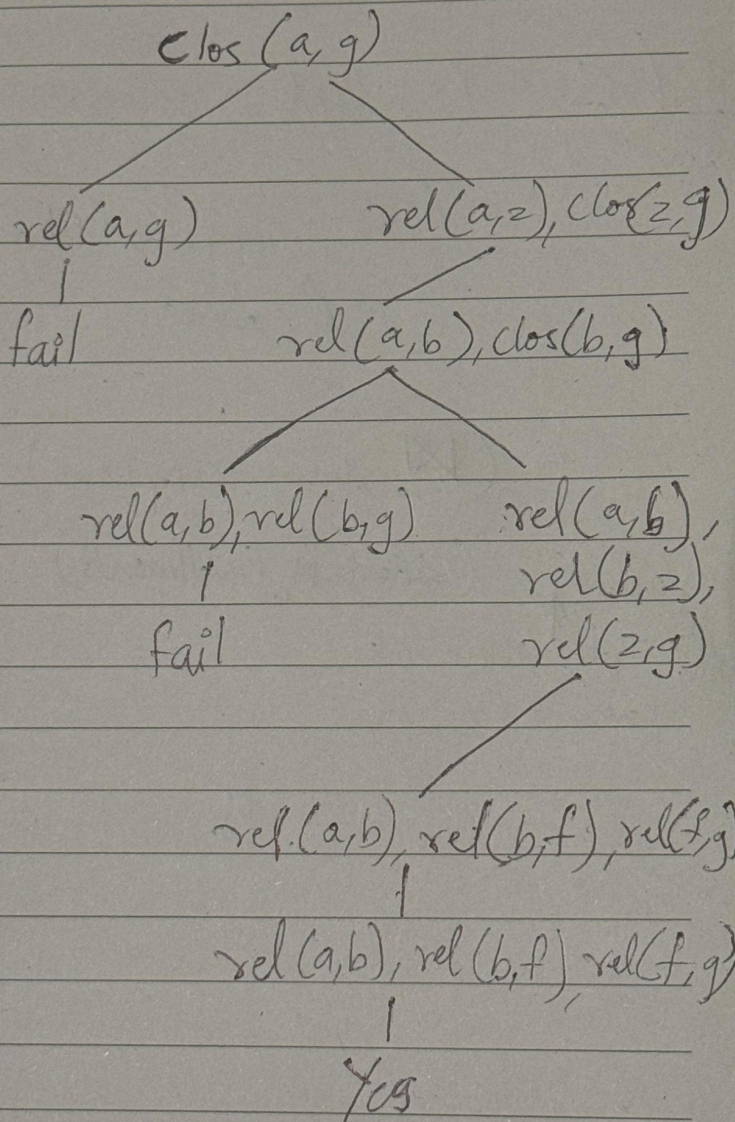 clos (a, g)
rel(a,g) rel(a,z), clos(z,g)
fail rel(a,b), clos(b,g)
rel(a,b), rel(b,g) rel(a,b),
rel(b,z),
fail rel(z,g)
rel.(a,b), rel(b,f), rel(f,g)
rel(a,b), rel(b,f), rel(f,g)
Yes